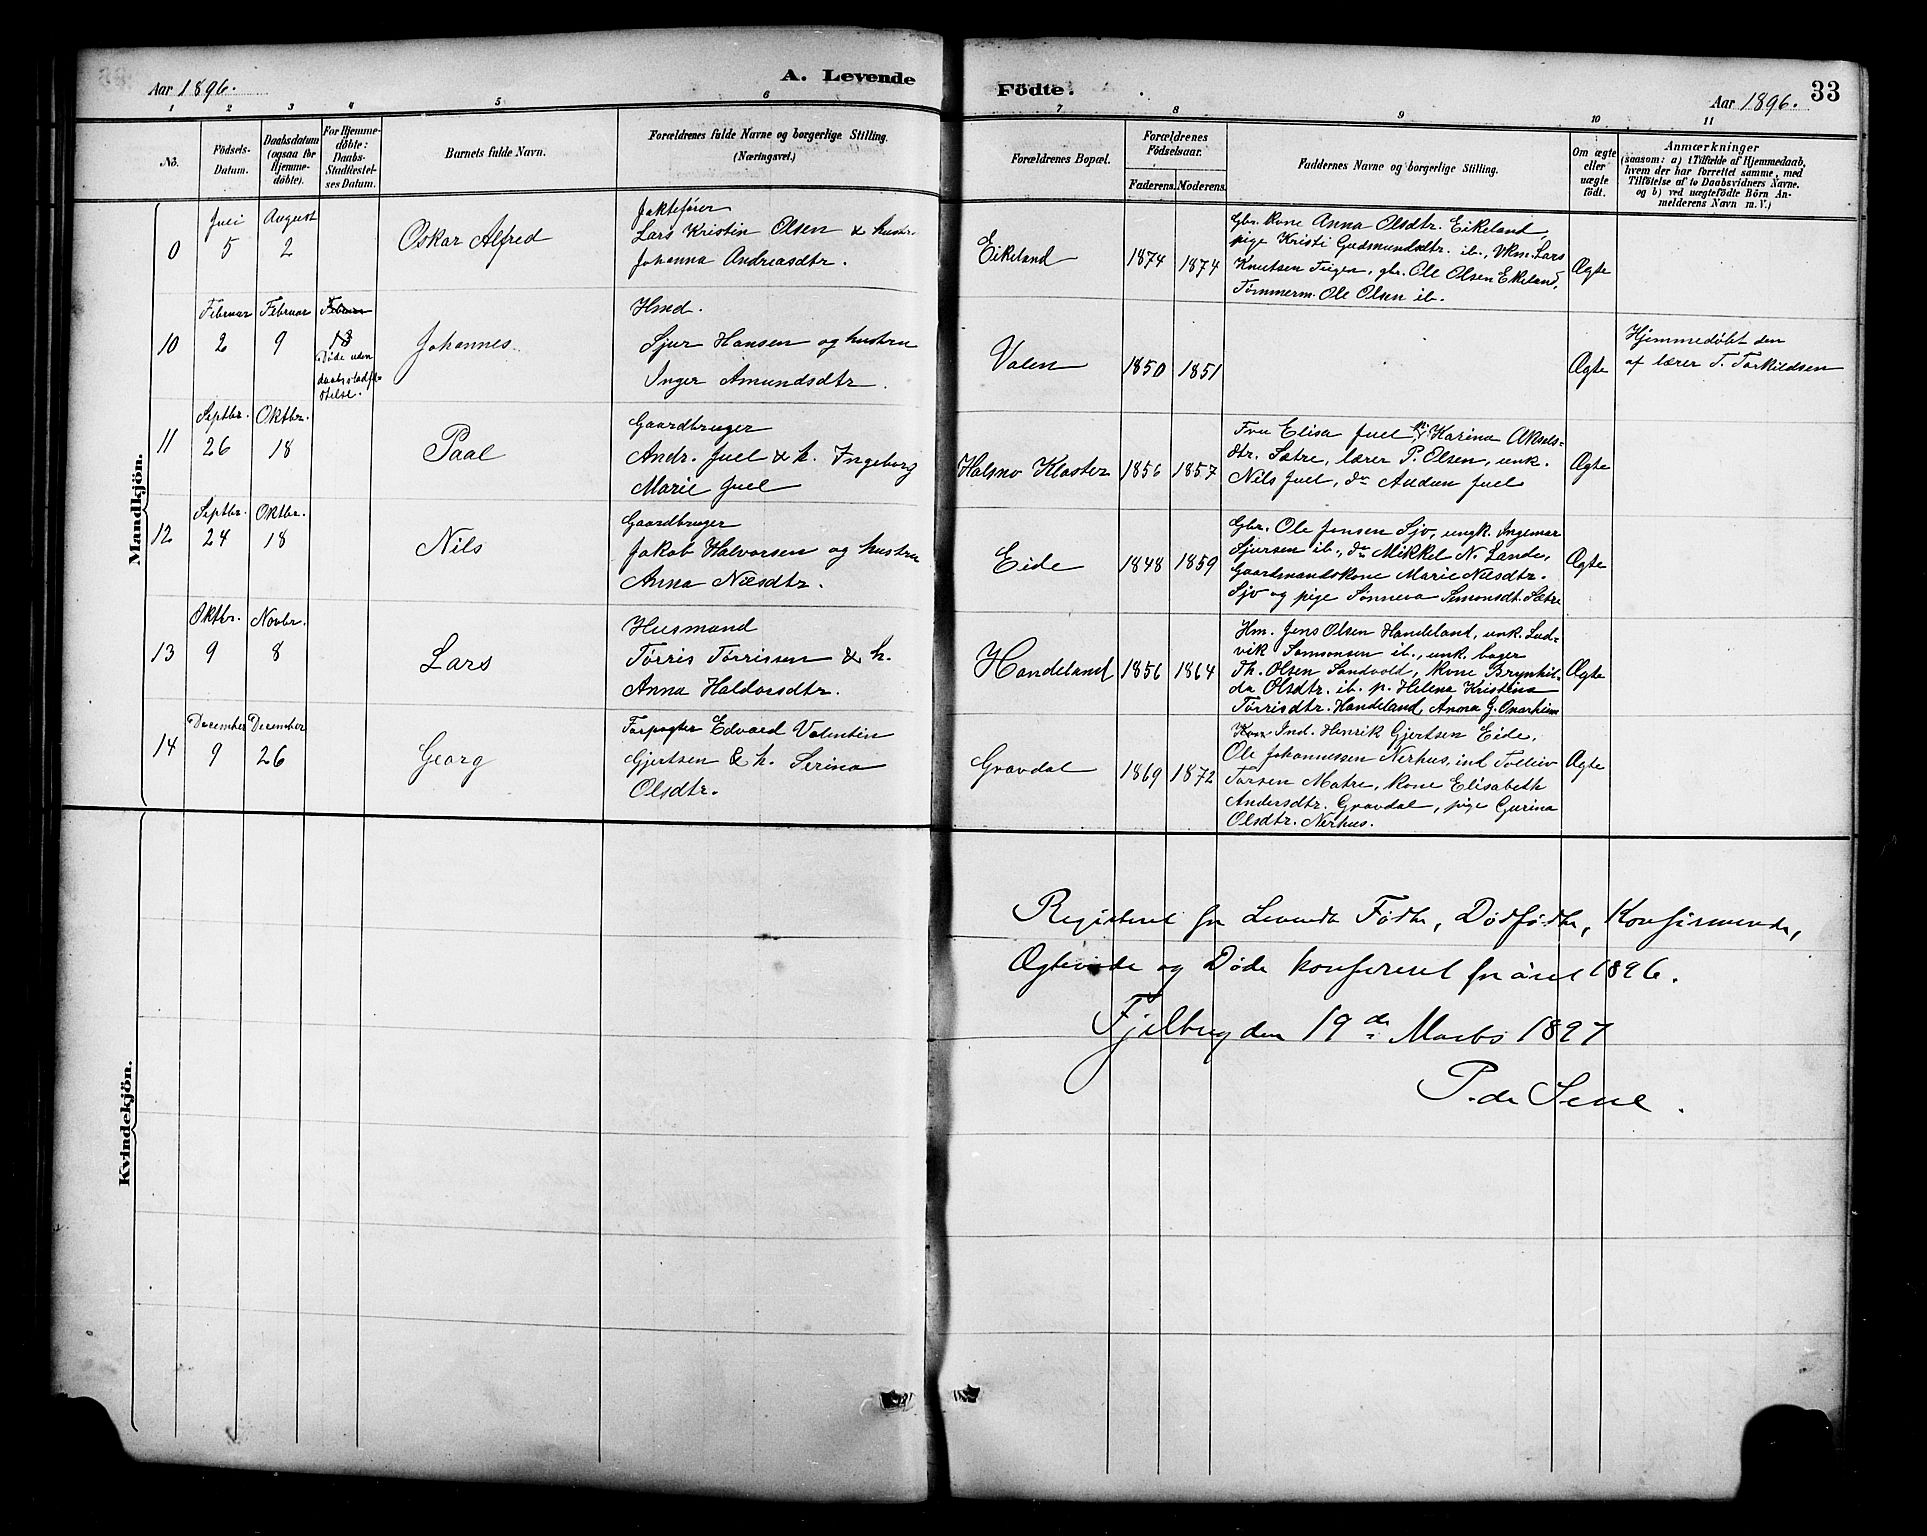 Aar 1896.
A. Levende
Födte.
Aar 1896.
33
1 2 3 4 5 6 7 8 9 10 11
Nö.
Födsels-
Datum.
Daabsdatum
(ogsaa for
Hjemme-
döbte).
For Hjemme-
döbte:
Daabs-
Stadfæstel-
ses Datum.
Barnets fulde Navn.
Forældrenes fulde Navne og borgerlige Stilling.
(Næringsvei.)
Forældrenes Bopæl.
Forældrenes
Födselsaar.
Faderens. Moderens.
Faddernes Navne og borgerlige Stilling.
Om ægte
eller
uægte
födt.
Anmærkninger
(saasom: a) i Tilfælde af Hjemmedaab,
hvem der har forrettet samme, med
Tilföielse af to Daabsvidners Navne.
og b) ved uægtefödte Börn An-
melderens Navn m. V.)
Mandkjön.
0
Juli
5
August
2
Oskar Alfred
Jaktefører
Lars Kristin Olsen & hustr.
Johanna Andreasdtr.
Eikeland
1874 1874
Gbr. kone Anna Olsdtr. Eikeland,
pige Kristi Gudmundsdtr. ib., Ukm. Lars
Knutsen Tugen, gbr. Ole Olsen Ekeland,
Tømmerm. Ole Olsen ib.
Ægte
10
Februar
2
Februar
9
Februar
18
Døde uden
daabsstadfæ-
stelse.
Johannes
Hmd.
Sjur Hansen og hustru
Inger Amundsdtr.
Valen
1850 1851
Ægte
Hjemmedøbt den
af lærer T. Torkildsen
11
Septbr.
26
Oktbr.
18
Paal
Gaardbruger
Andr. Juel & h. Ingeborg
Marie Juel
Halsnø Kloster
1856 1857
Fru Elisa Juel, Karina Aksels-
dtr. Sætre, lærer P. Olsen, unk.
Nils Juel, do Audun Juel
Ægte
12
Septbr.
24
Oktbr.
18
Nils
Gaardbruger
Jakob Halvorsen og hustru
Anna Nilsdtr.
Eide
1848 1859
Gbr. Ole Jensen Sjo, ungk. Ingemar
Sjursen ib., do Mikkel N. Lande,
Gaardmandskone Marie Nilsdtr.
Sjo og pige Sønneva Simonsdt. Sætre
Ægte
13
Oktbr.
9
Novbr.
8
Lars
Husmand
Tørris Tørrissen & h.
Anna Haldorsdtr.
Handeland
1856 1864
Hm. Jens Olsen Handeland, unk. Lud-
vik Samsonsen ib., unk. bager
Th. Olsen Sandvold, kone Brynhil-
da Olsdtr. ib. p. Helena Kristina
Tørrisdtr. Handeland, Anna G. Onarheim
Ægte
14
December
9
December
26
Georg
Forpagter Edvard Valentin
Gjertsen & h. Serina
Olsdtr.
Gravdal
1869 1872
Ind. Henrik Gjertsen Eide,
Ole Johannessen Nerhus, ind Tolleiv
Torsen Matre, kone Elisabeth
Andersdtr. Gravdal, pige Gurina
Olsdtr. Nerhus.
Ægte
Kvindekjön.
Registeret for Levende Fødte, Dødfødte, Konfirmerede,
Ægteviede og Døde konfereret for året 1896.
Fjelberg den 19de Marts 1897
P. de Seue.